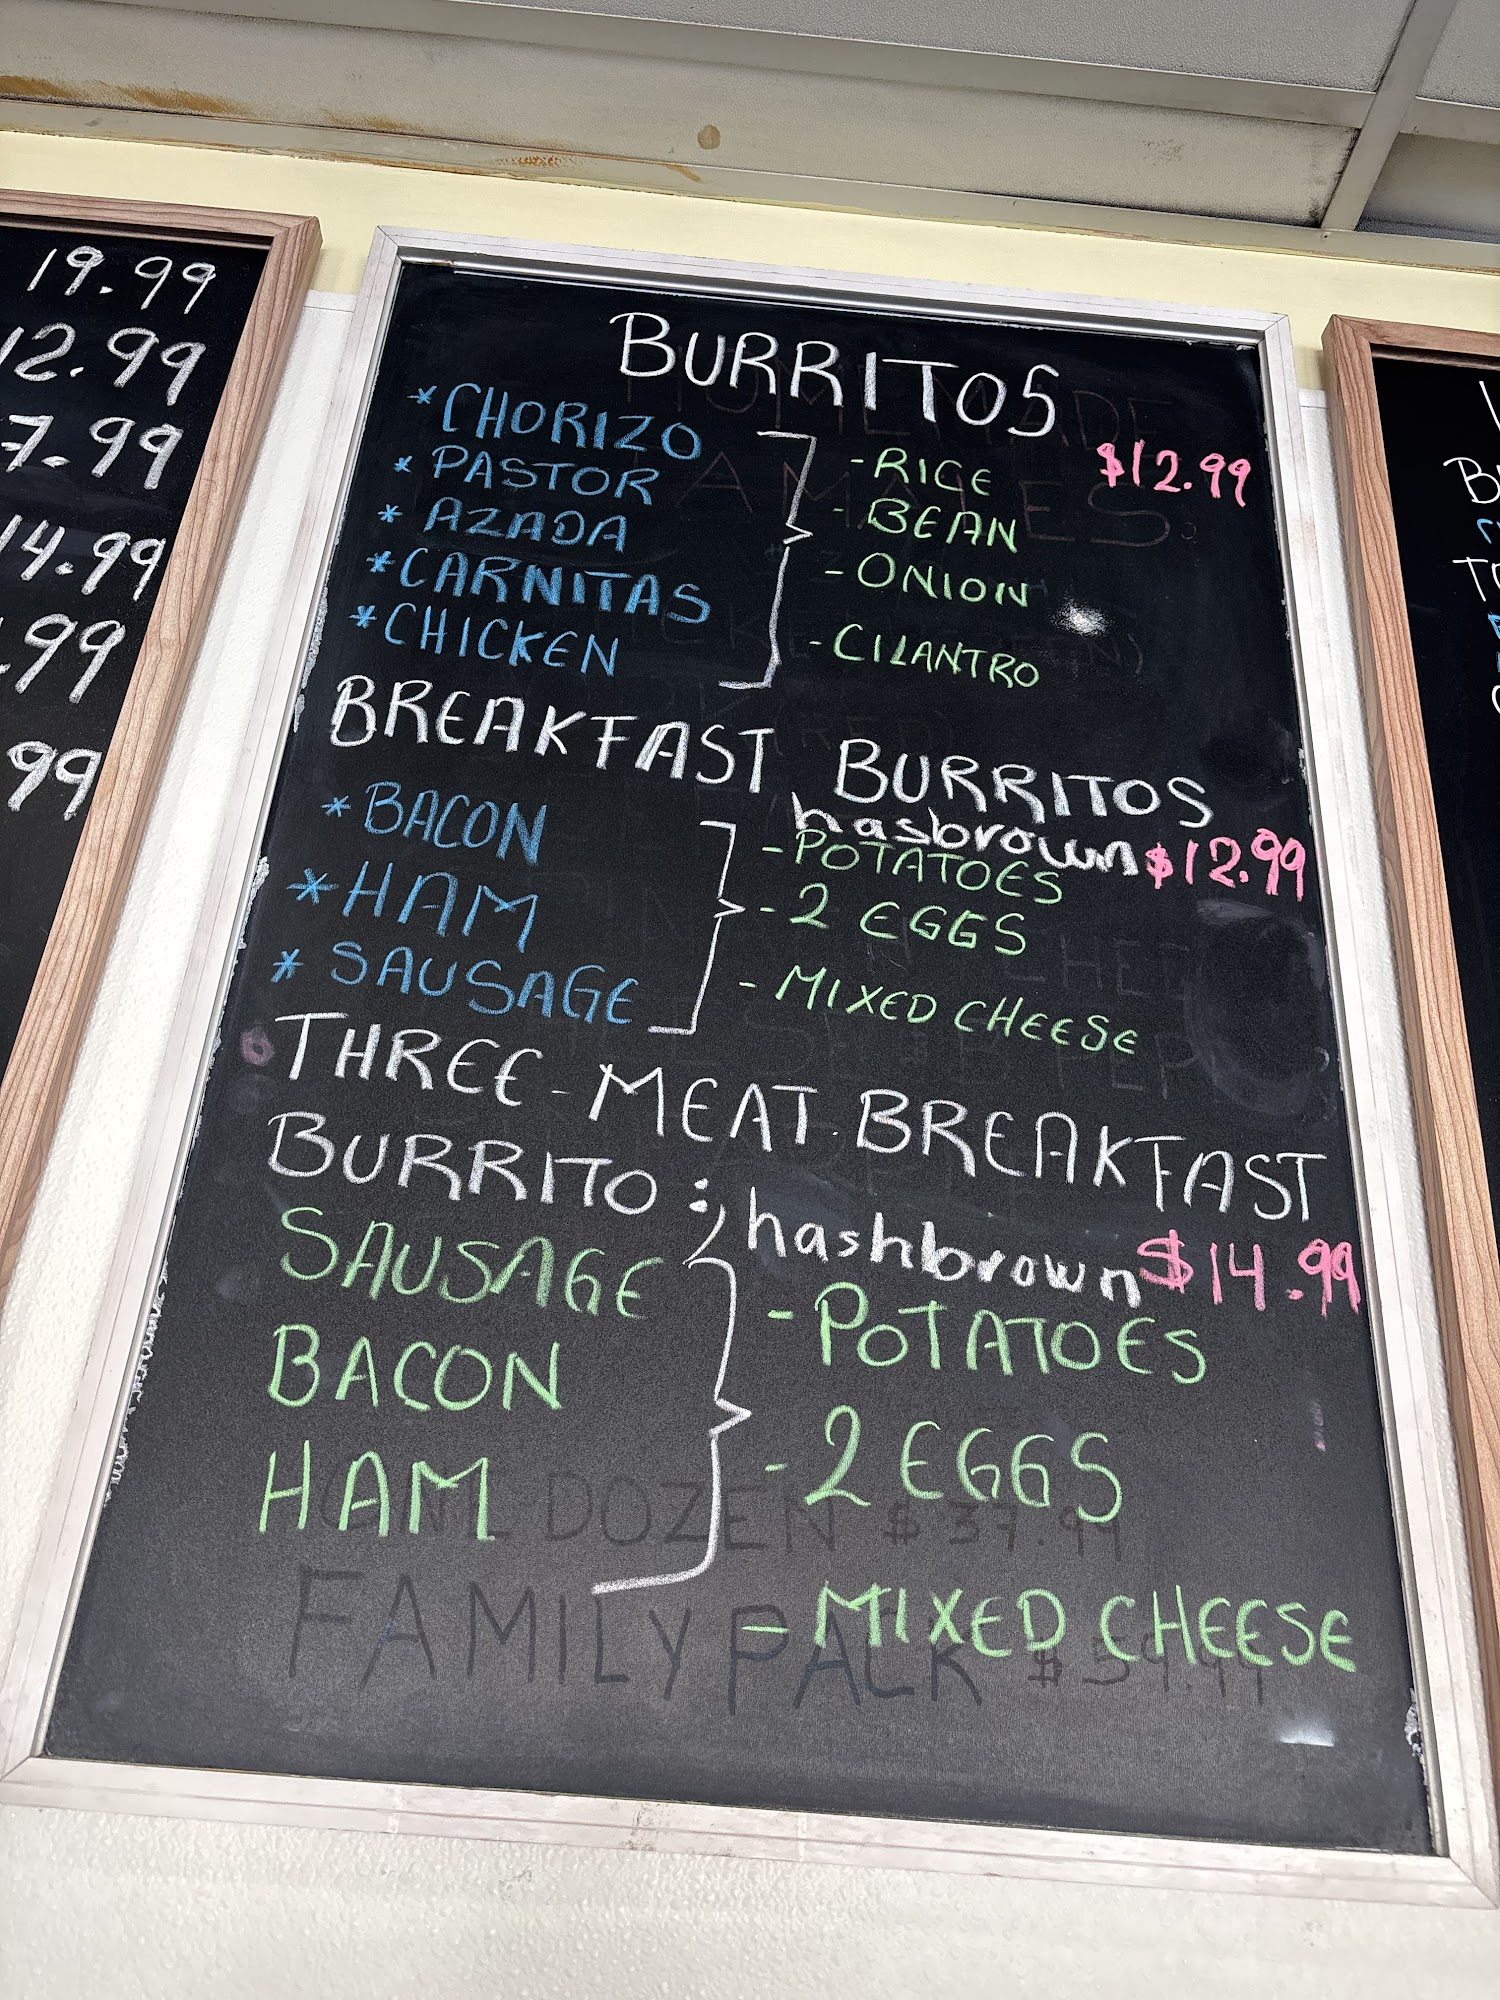 BURRITOS
*CHORIZO
* PASTOR
* AZADA
*CARNITAS
*CHICKEN
-RICE $12.99
- BEAN
-ONION
-CILANTRO
BREAKFAST BURRITOS
*BACON
*HAM
* SAUSAGE
hasbrown $12.99
-POTATOES
-2 EGGS
- MIXED CHEESE
THREE-MEAT.BREAKFAST
BURRITO:, hashbrown $14.99
SAUSAGE
BACON
HAM
-POTATOES
-2 EGGS
-MIXED CHEESE
DOZEN $37.99
FAMILY PACK $59.99
19.99
12.99
7.99
14.99
.99
99